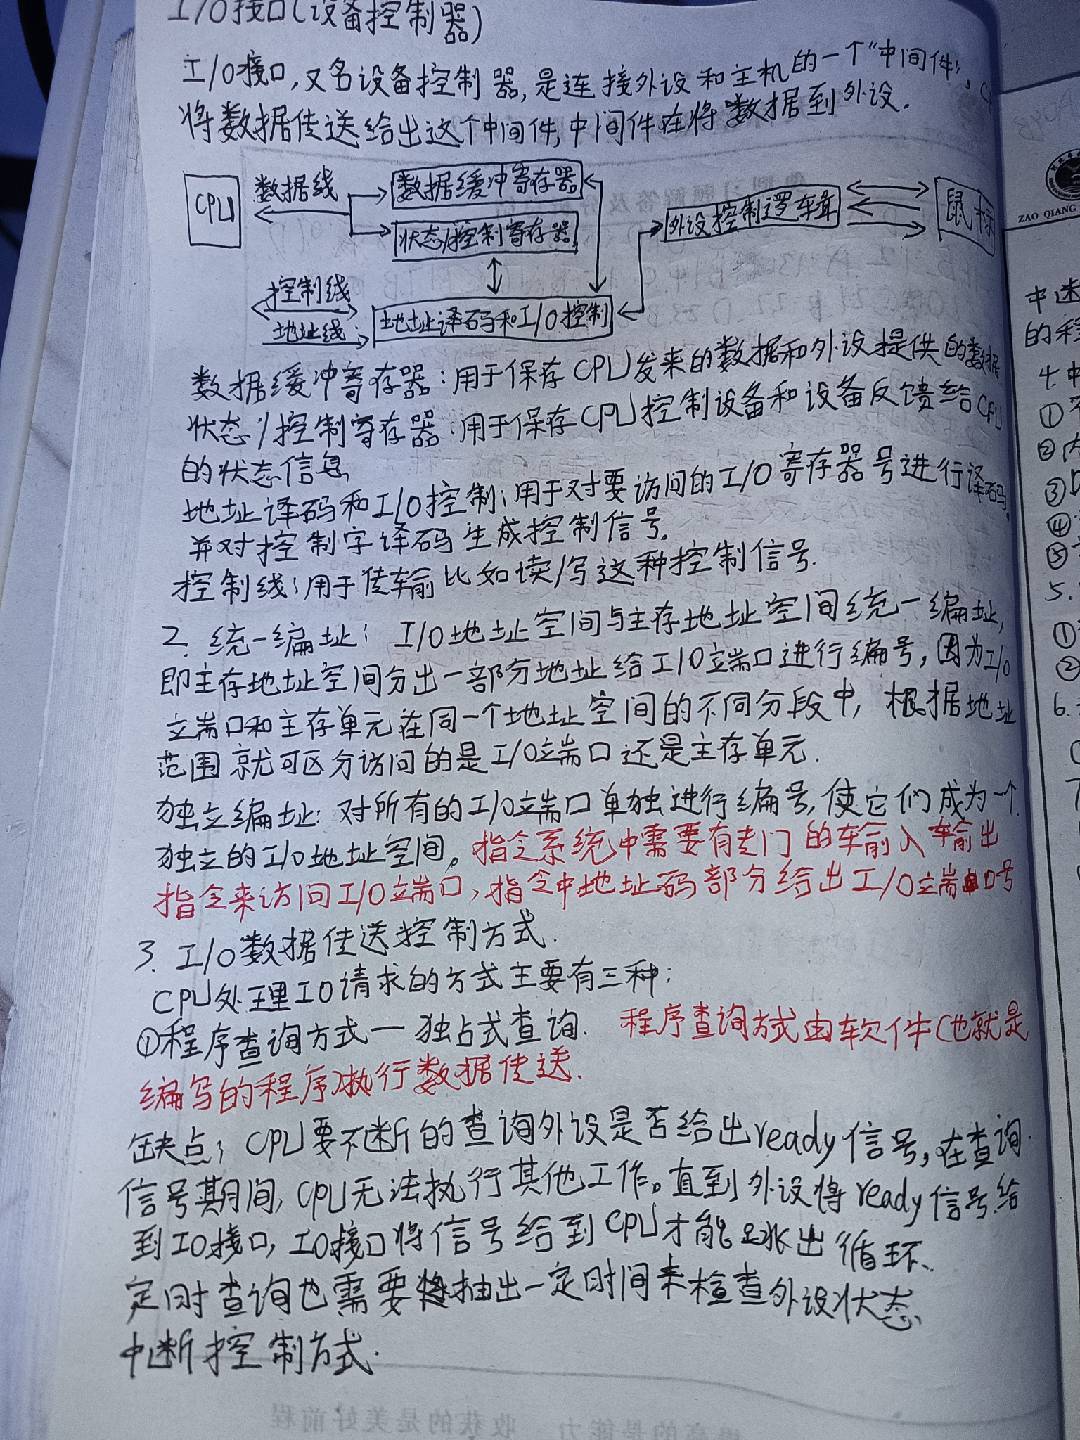 I/O接口(设备控制器)
I/O接口,又名设备控制器,是连接外设和主机的一个“中间件”,
将数据传送给出这个中间件,中间件在将数据到外设.
CPU
数据线
数据缓冲寄存器
状态/控制寄存器
外设控制逻辑
鼠标
控制线
地址线
地址译码和I/O控制
数据缓冲寄存器:用于保存CPU发来的数据和外设提供的数据
状态/控制寄存器:用于保存CPU控制设备和设备反馈给CPU
的状态信息
地址译码和I/O控制:用于对要访问的I/O寄存器号进行译码,
并对控制字译码生成控制信号.
控制线:用于传输比如读/写这种控制信号.
2. 统一编址: I/O地址空间与主存地址空间统一编址,
即主存地址空间分出一部分地址给I/O端口进行编号,因为I/O
端口和主存单元在同一个地址空间的不同分段中,根据地址
范围就可区分访问的是I/O端口还是主存单元.
独立编址:对所有的I/O端口单独进行编号,使它们成为一个
独立的I/O地址空间。指令系统中需要有专门的输入输出
指令来访问I/O端口,指令中地址码部分给出I/O端口号
3. I/O数据传送控制方式.
CPU处理IO请求的方式主要有三种:
①程序查询方式一独占式查询. 程序查询方式由软件(也就是
编写的程序)执行数据传送.
缺点:CPU要不断的查询外设是否给出ready信号,在查询
信号期间,CPU无法执行其他工作。直到外设将ready信号给
到IO接口,IO接口将信号给到CPU才能跳出循环.
定时查询也需要抽出一定时间来检查外设状态
中断控制方式.
ZAO QIANG
中
的程
4.中
①
②内
③
④
⑤
5.
①
②
6.
收获的是美好前程